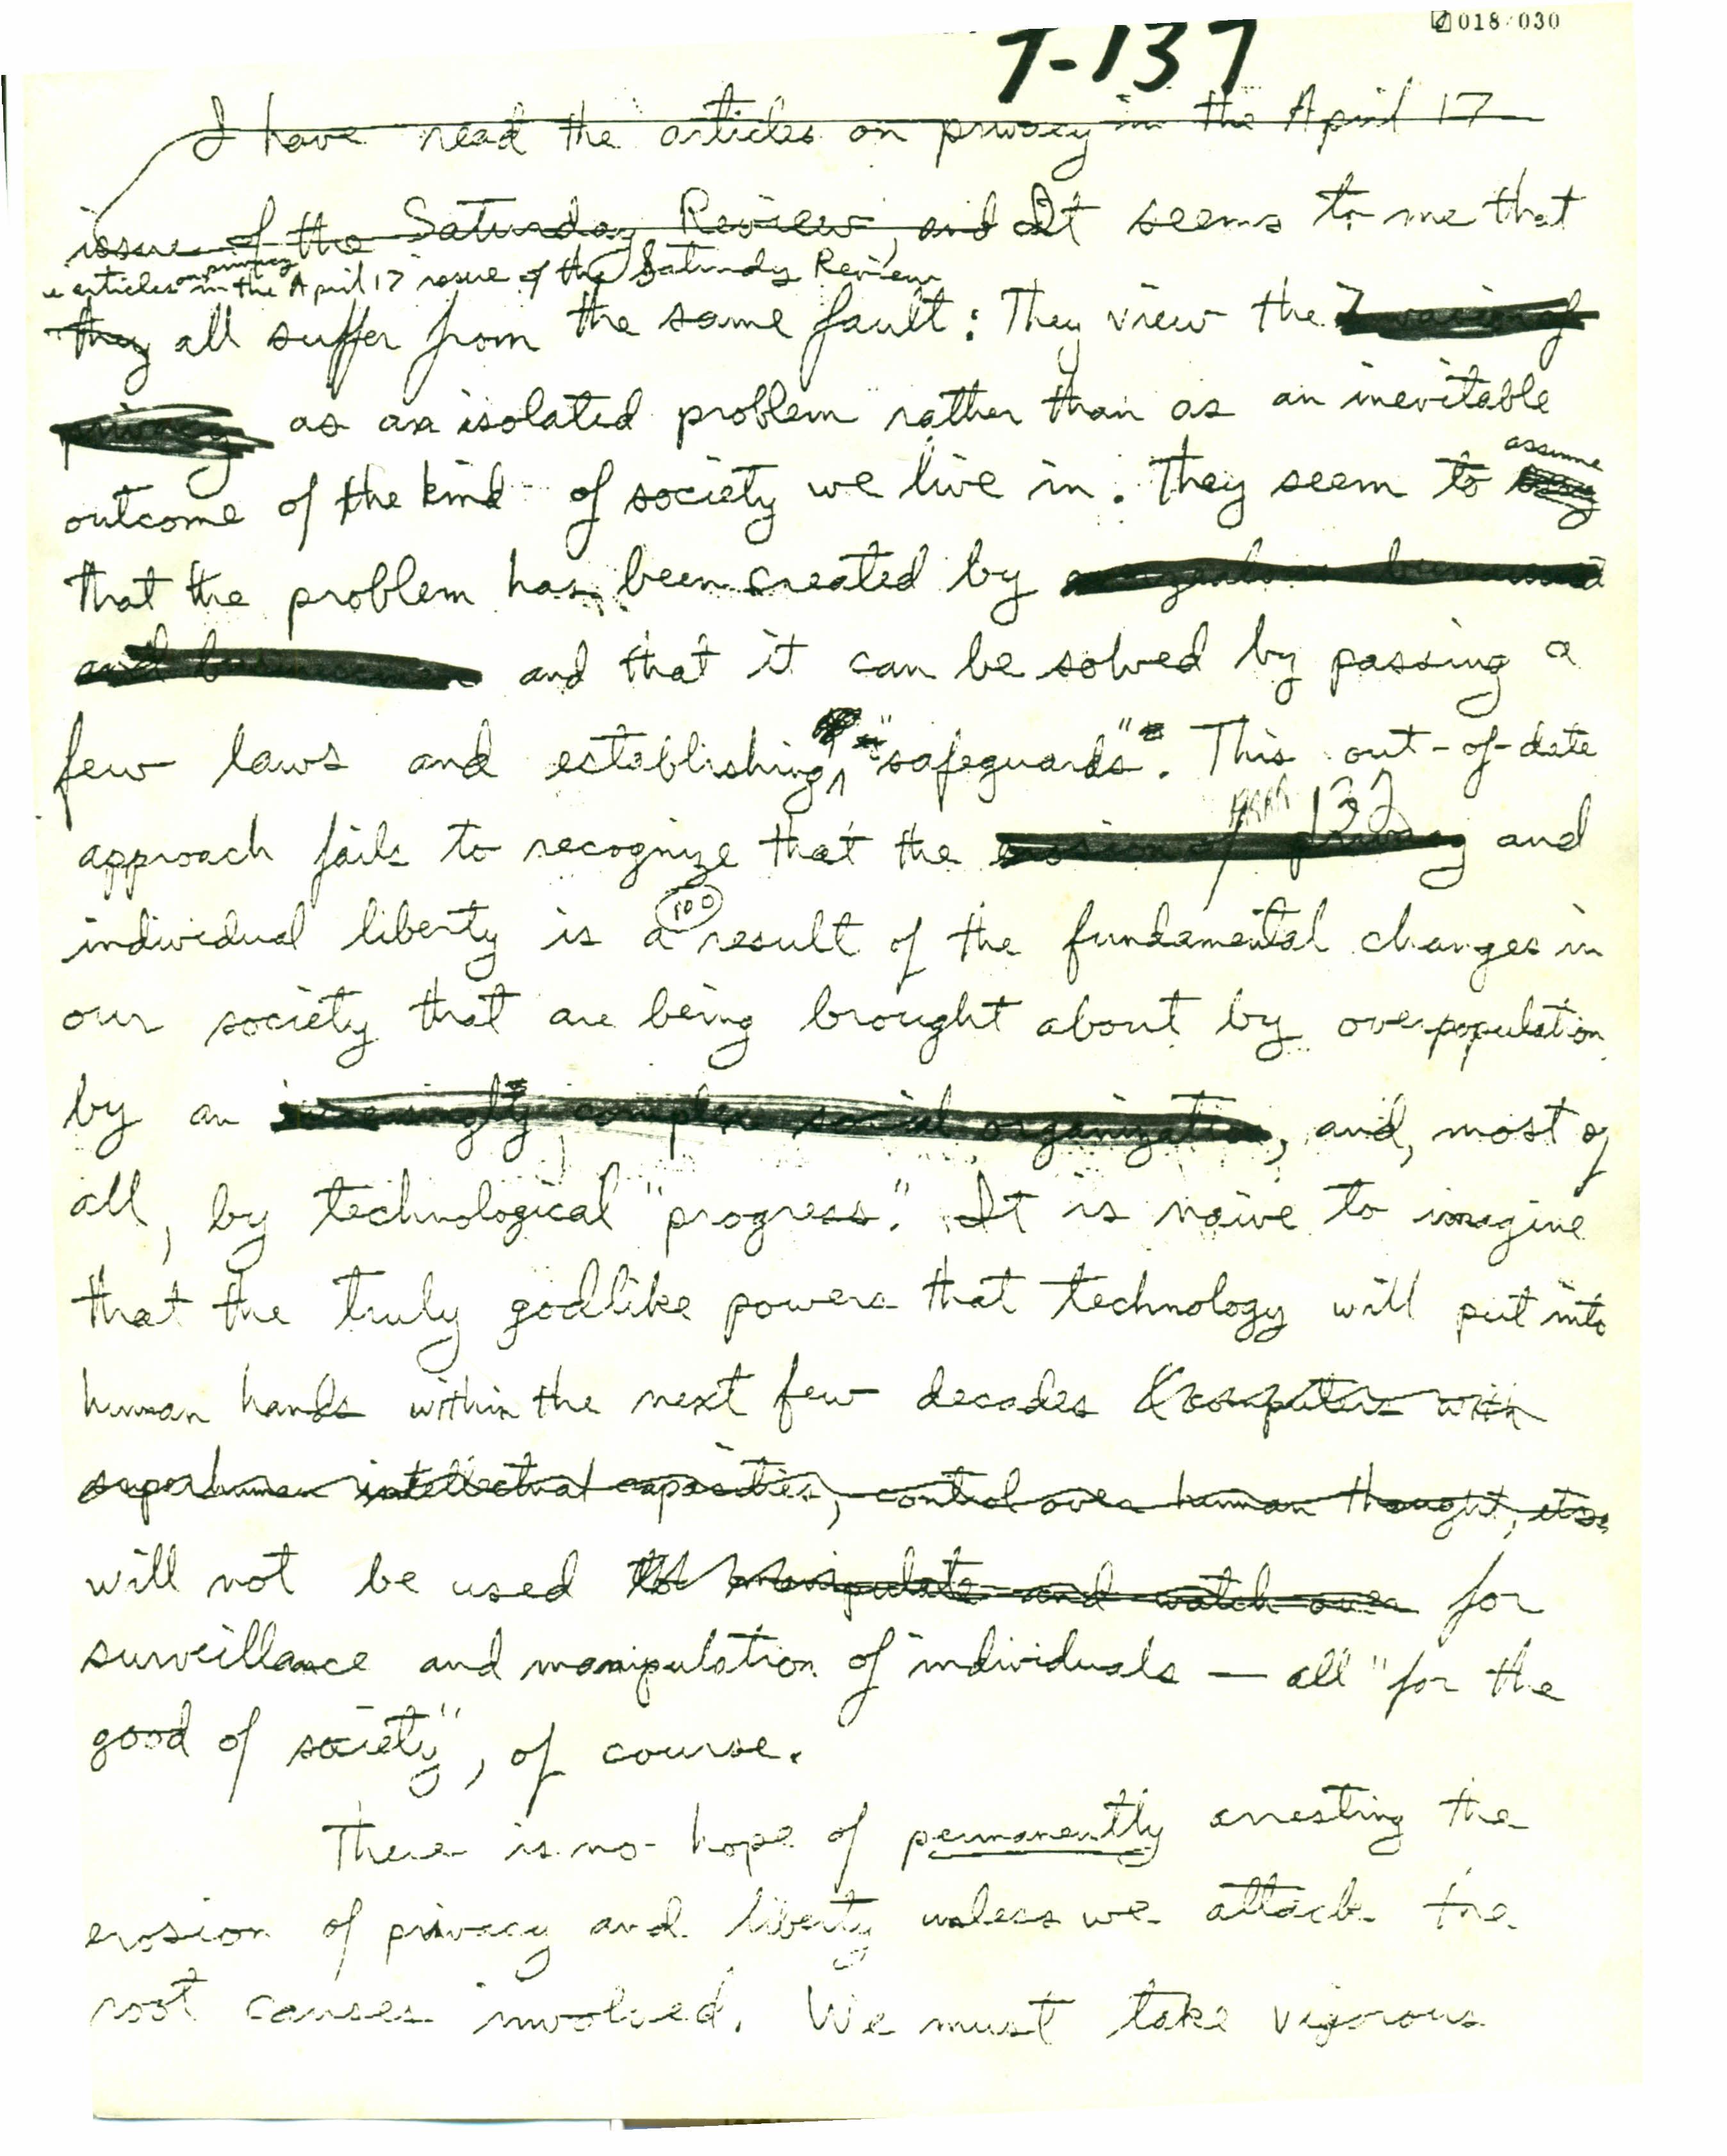 018/030
T-137
I have read the articles on privacy in the April 17
issue of the Saturday Review, and It seems to me that
articles on privacy in the April 17 issue of the Saturday Review
they all suffer from the same fault: They view the
as an isolated problem rather than as an inevitable
assume
outcome of the kind of society we live in. They seem to
that the problem has been created by
and that it can be solved by passing a
few laws and establishing "safeguards". This out-of-date
132
approach fails to recognize that the erosion of privacy and
100
individual liberty is a result of the fundamental changes in
our society that are being brought about by overpopulation
by an increasingly complex social organization, and, most of
all, by technological "progress." It is naive to imagine
that the truly godlike powers that technology will put into
human hands within the next few decades (computers with
superhuman intellectual capacities, control over human thought, etc.
will not be used to manipulate and watch over for
surveillance and manipulation of individuals — all "for the
good of society", of course.
There is no hope of permanently arresting the
erosion of privacy and liberty unless we attack the
root causes involved. We must take vigorous